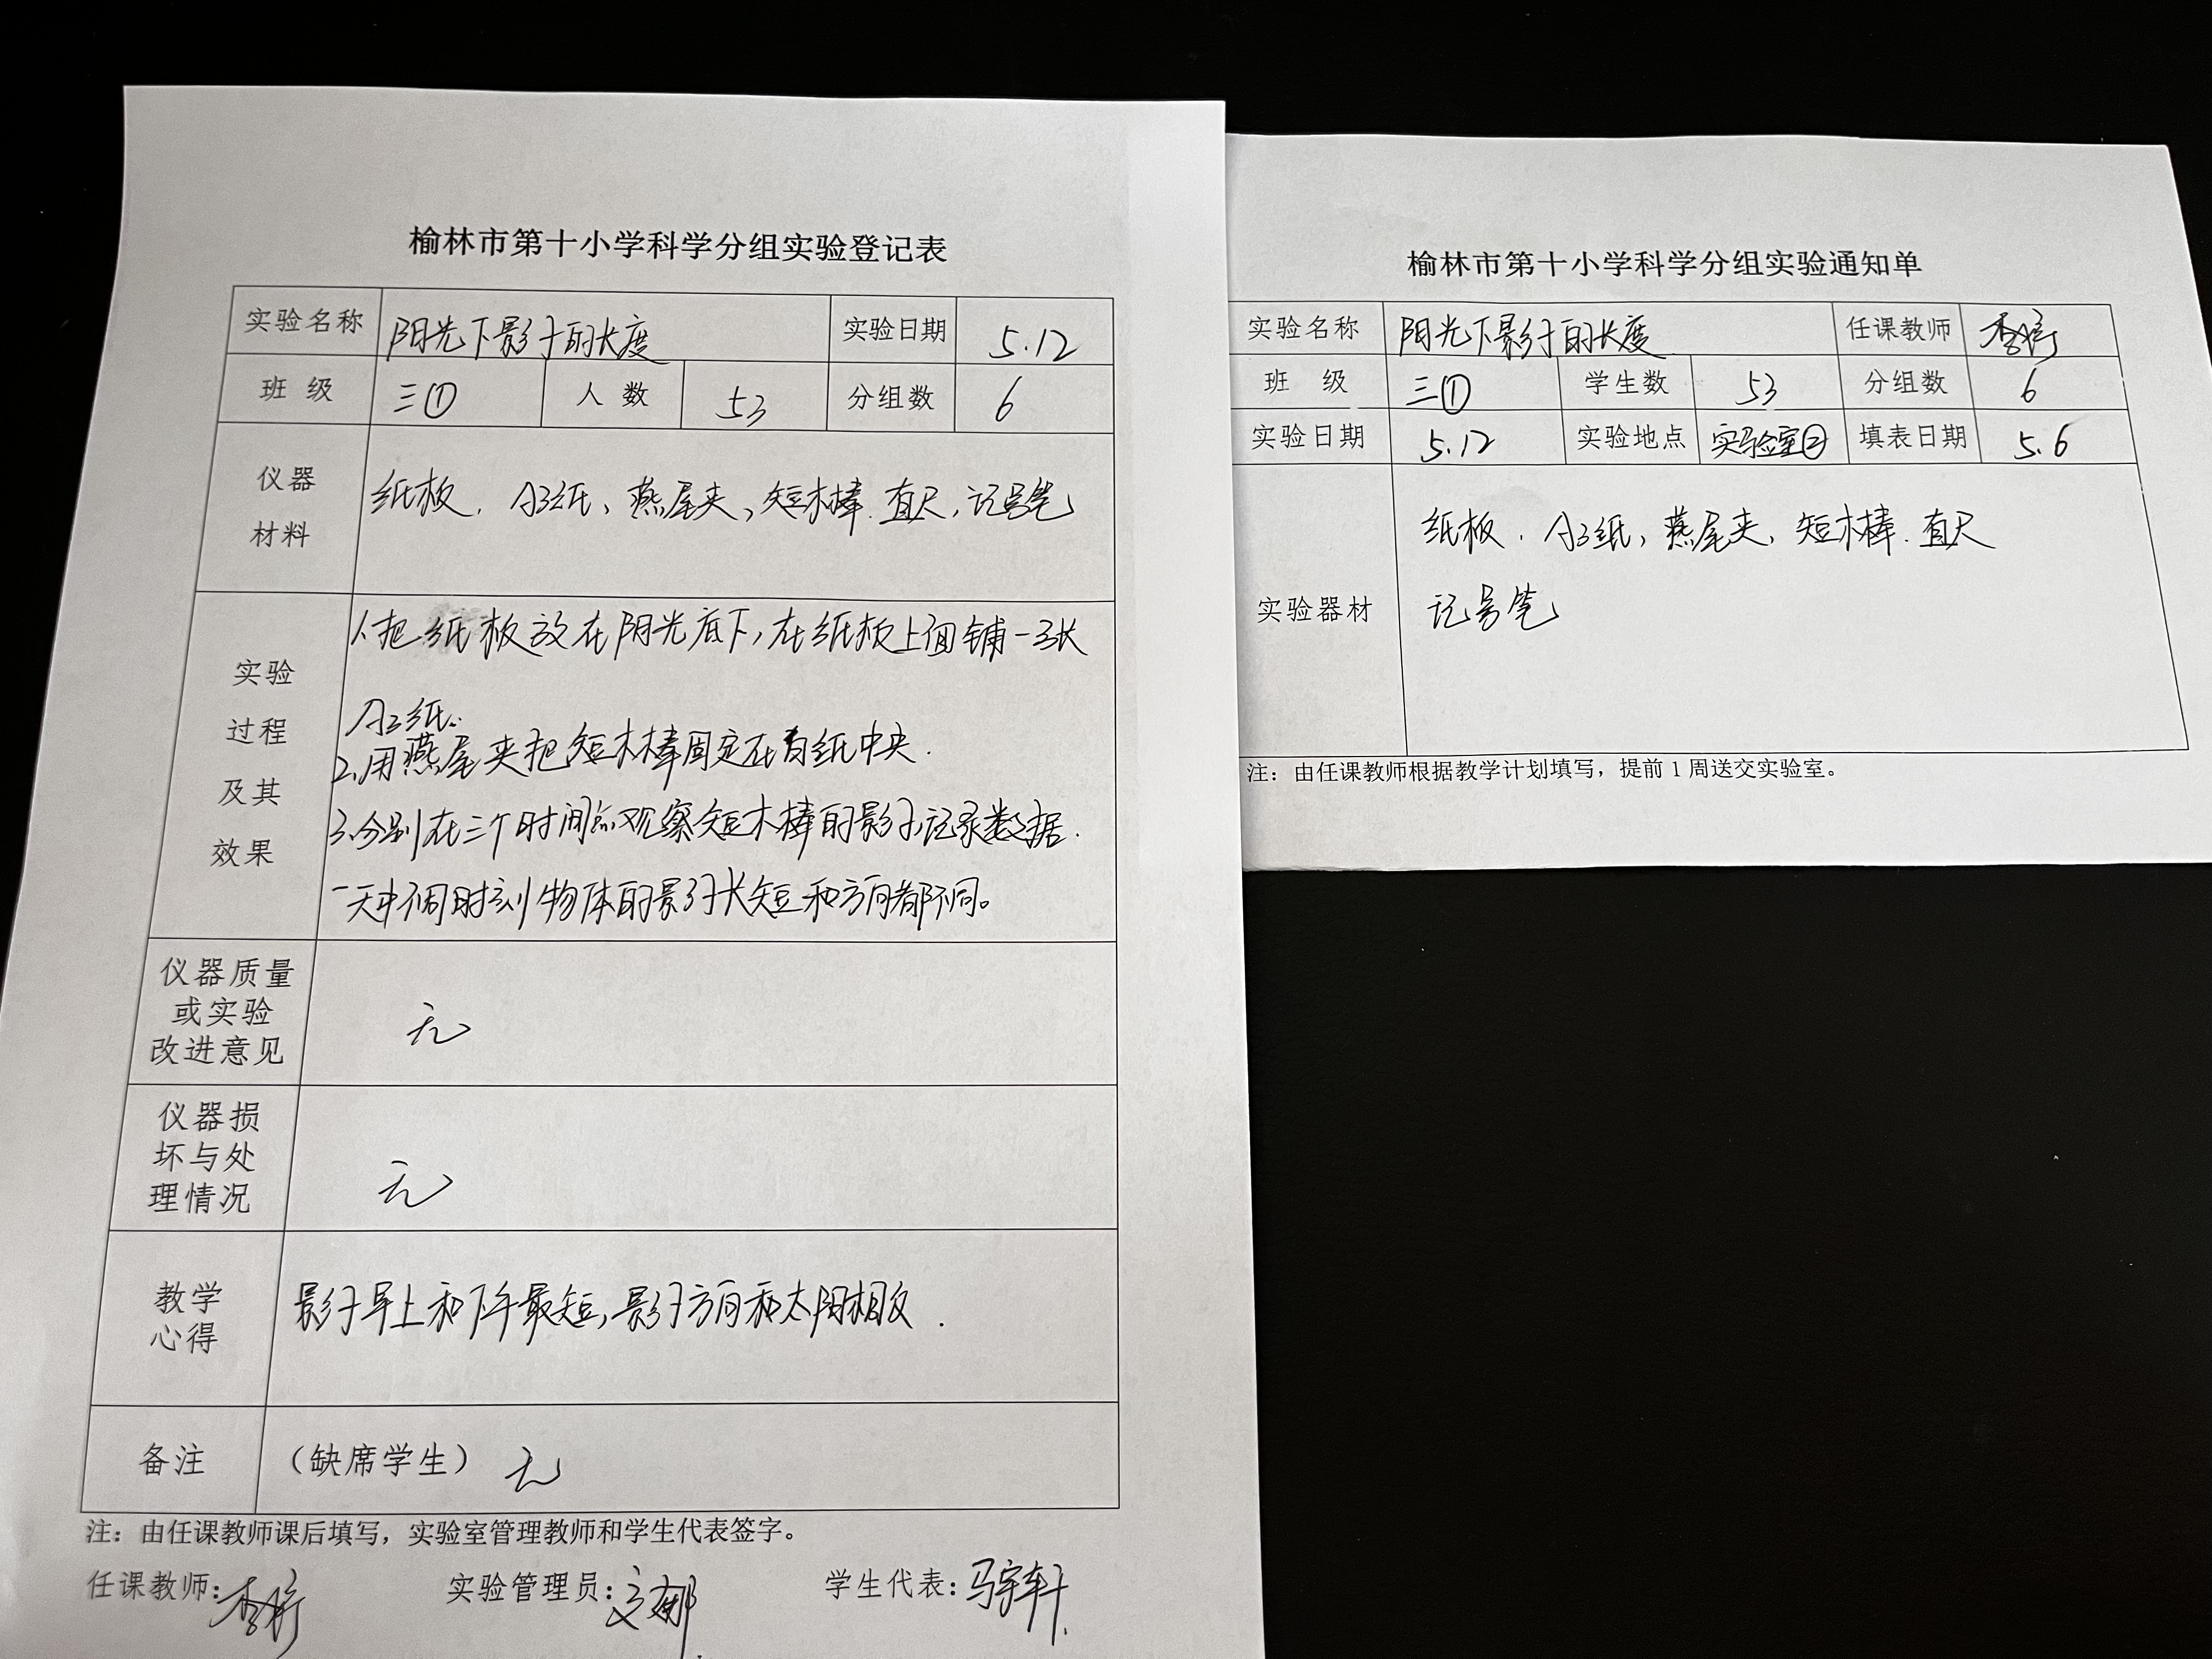 榆林市第十小学科学分组实验登记表
实验名称 阳光下影子的长度 实验日期 5.12
班 级 三① 人 数 53 分组数 6
仪器
材料
纸板、A3纸、燕尾夹、短木棒、直尺、记号笔
实验
过程
及其
效果
1.把纸板放在阳光底下,在纸板上面铺一张
A3纸.
2.用燕尾夹把短木棒固定在白纸中央.
3.分别在三个时间点观察短木棒的影子,记录数据.
一天中不同时刻物体的影子长短和方向都不同。
仪器质量
或实验
改进意见
无
仪器损
坏与处
理情况
无
教学
心得
影子早上和下午最短,影子方向和太阳相反.
备注 (缺席学生) 无
注:由任课教师课后填写,实验室管理教师和学生代表签字。
任课教师: 实验管理员: 学生代表:马宇轩
榆林市第十小学科学分组实验通知单
实验名称 阳光下影子的长度 任课教师
班 级 三① 学生数 53 分组数 6
实验日期 5.12 实验地点 实验室② 填表日期 5.6
实验器材
纸板、A3纸,燕尾夹、短木棒.直尺
记号笔
注:由任课教师根据教学计划填写,提前1周送交实验室。